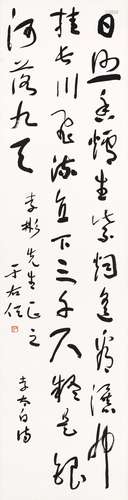 日照香爐生紫烟遙看瀑布
挂長川飛流直下三千尺疑是銀
河落九天
李彬先生正之
于右任
李太白詩